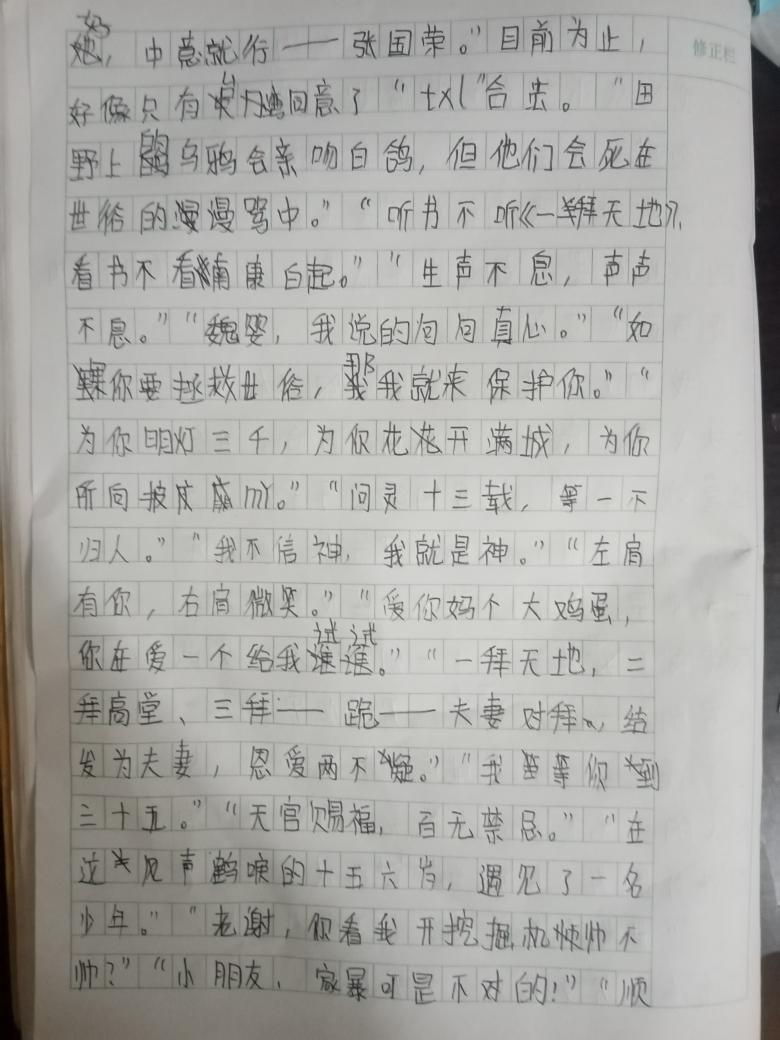 修正栏
她，中意就行——张国荣。”目前为止，
好像只有 回意了“txl”合法。“田
野上的乌鸦会亲吻白鸽，但他们会死在
世俗的漫漫骂中。”“听书不听《一拜天地》，
看书不看《南康白起。”“生声不息，声声
不息。”“魏婴，我说的句句真心。”“如
果你要拯救世俗，那我就来保护你。”“
为你明灯三千，为你花花开满城，为你
所向披 。”“问灵十三载，等一不
归人。”“我不信神，我就是神。”“左肩
有你，右肩微笑。”“爱你妈个大鸡蛋，
你在爱一个给我试试。”“一拜天地，二
拜高堂、三拜——跪——夫妻对拜，结
发为夫妻，恩爱两不疑。”“我等等你到
三十五。”“天官赐福，百无禁忌。”“在
这 风声鹤唳的十五六岁，遇见了一名
少年。”“老谢，你看我开挖掘机帅不
帅？”“小朋友，家暴可是不对的！”“顺